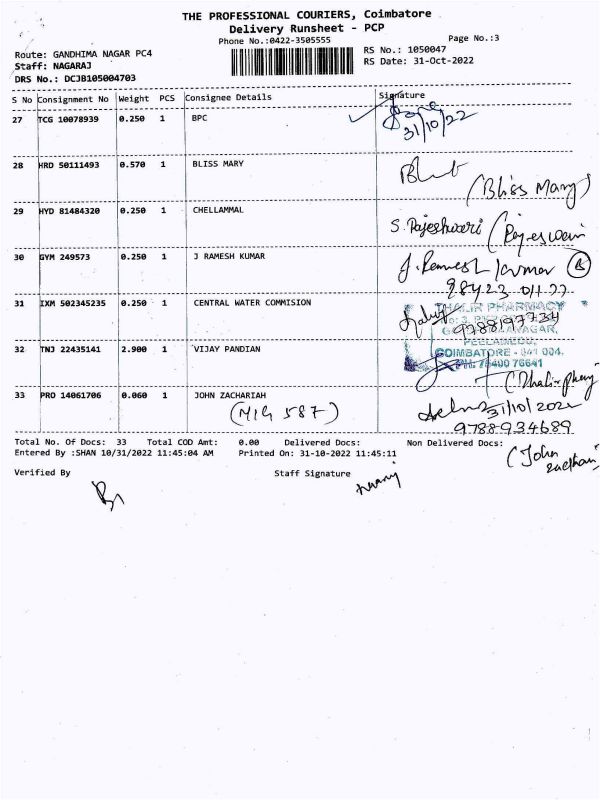 THE PROFESSIONAL COURIERS, Coimbatore
Delivery Runsheet - PCP
Phone No.:0422-3505555
Page No.:3
Route: GANDHIMA NAGAR PC4
RS No.: 1050047
Staff: NAGARAJ
RS Date: 31-Oct-2022
DRS No.: DCJB105004703
S No Consignment No Weight PCS Consignee Details Signature
27 TCG 10078939 0.250 1 BPC
31/10/22
28 HRD 50111493 0.570 1 BLISS MARY
(Bliss Mary)
29 HYD 81484320 0.250 1 CHELLAMMAL
S. Rajeshwari
30 GYM 249573 0.250 1 J RAMESH KUMAR
J. Ramesh Kumar
31 IXM 502345235 0.250 1 CENTRAL WATER COMMISION
THALIR PHARMACY
9788197734
PEELAMEDU,
32 TNJ 22435141 2.900 1 VIJAY PANDIAN
COIMBATORE - 641 004.
PH: 75400 76641
33 PRO 14061706 0.060 1 JOHN ZACHARIAH
(MIG 587)
31/10/2022
9788934689
Total No. Of Docs: 33 Total COD Amt: 0.00 Delivered Docs: Non Delivered Docs:
Entered By :SHAN 10/31/2022 11:45:04 AM Printed On: 31-10-2022 11:45:11
(John
Verified By Staff Signature